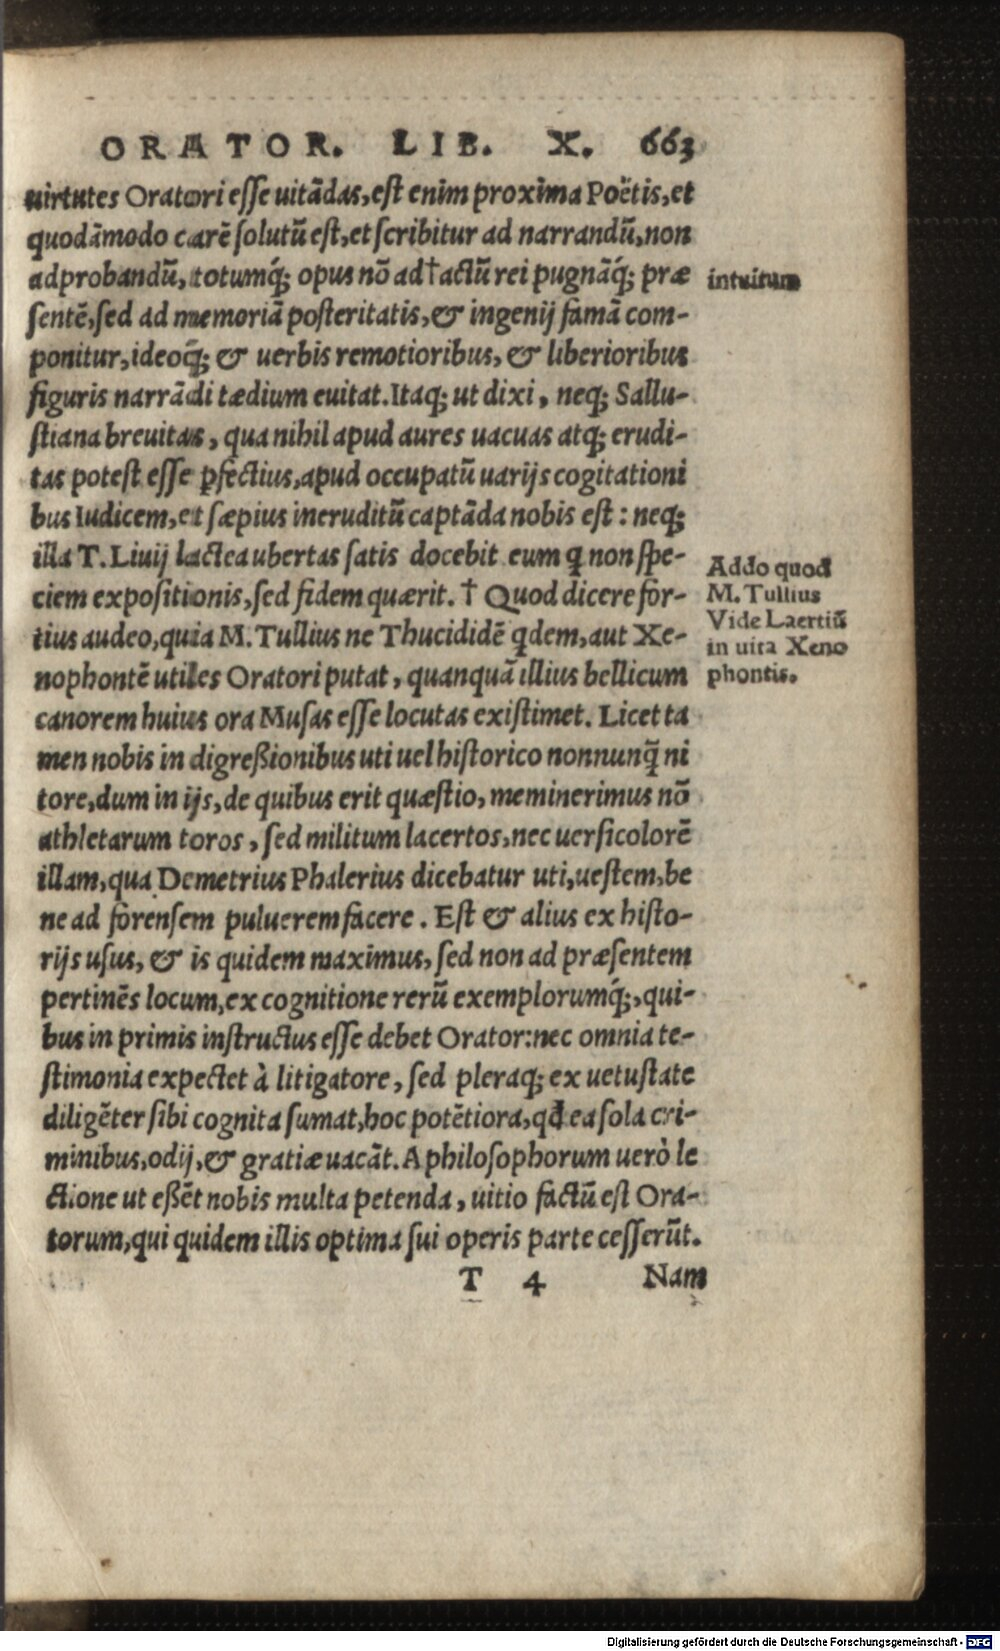 ORATOR. LIB. X. 663
uirtutes Oratori esse uitādas, est enim proxima Poëtis, et
quodāmodo carē solutū est, et scribitur ad narrandū, non
adprobandū, totumq́; opus nō ad†actū rei pugnāq́; præ
intuitum
sentē, sed ad memoriā posteritatis, & ingenij famā com-
ponitur, ideoq́; & uerbis remotioribus, & liberioribus
figuris narrādi tædium euitat. Itaq; ut dixi, neq; Sallu-
stiana breuitas, qua nihil apud aures uacuas atq; erudi-
tas potest esse ꝑfectius, apud occupatū uarijs cogitationi
bus Iudicem, et sæpius ineruditū captāda nobis est: neq;
illa T. Liuij lactea ubertas satis docebit eum q̄ non spe-
ciem expositionis, sed fidem quærit. † Quod dicere for-
tius audeo, quia M. Tullius ne Thucididē q̄dem, aut Xe-
nophontē utiles Oratori putat, quanquā illius bellicum
Addo quod
M. Tullius
Vide Laertiū
in uita Xeno
phontis.
canorem huius ora Musas esse locutas existimet. Licet ta
men nobis in digreßionibus uti uel historico nonnunq̄ ni
tore, dum in ijs, de quibus erit quæstio, meminerimus nō
athletarum toros, sed militum lacertos, nec uersicolorē
illam, qua Demetrius Phalerius dicebatur uti, uestem, be
ne ad forensem puluerem facere. Est & alius ex histo-
rijs usus, & is quidem maximus, sed non ad præsentem
pertinēs locum, ex cognitione rerū exemplorumq́;, qui-
bus in primis instructus esse debet Orator: nec omnia te-
stimonia expectet à litigatore, sed pleraq; ex uetustate
diligēter sibi cognita sumat, hoc potētiora, qd ea sola cri-
minibus, odij, & gratiæ uacāt. A philosophorum uerò le
ctione ut eßēt nobis multa petenda, uitio factū est Ora-
torum, qui quidem illis optima sui operis parte cesserūt.
T 4 Nam
Digitalisierung gefördert durch die Deutsche Forschungsgemeinschaft - DFG